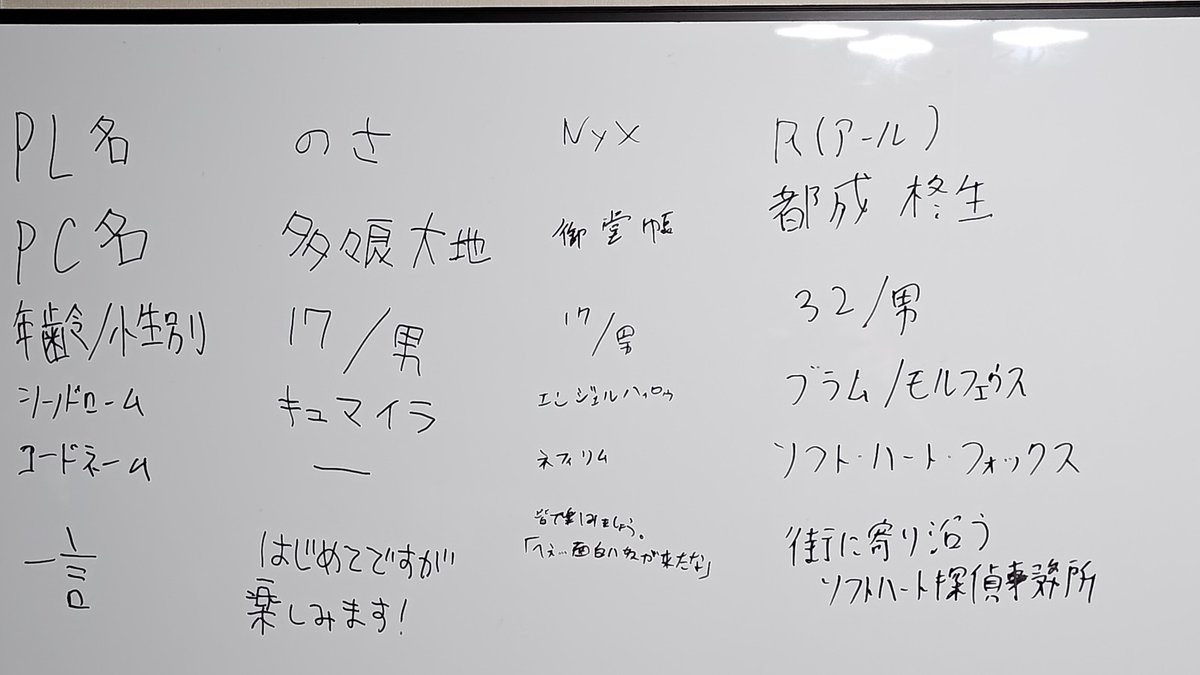 PL名 のさ Nyx R(アール)
PC名 多々良大地 御堂 帳 都成 柊生
年齢/性別 17/男 17/男 32/男
シンドローム キュマイラ エンジェルハィロゥ ブラム/モルフェウス
コードネーム — ネフィリム ソフト・ハート・フォックス
一言 はじめてですが 皆で楽しみましょう。 街に寄り沿う
楽しみます! 「へぇ…面白い奴が来たな」 ソフトハート探偵事務所